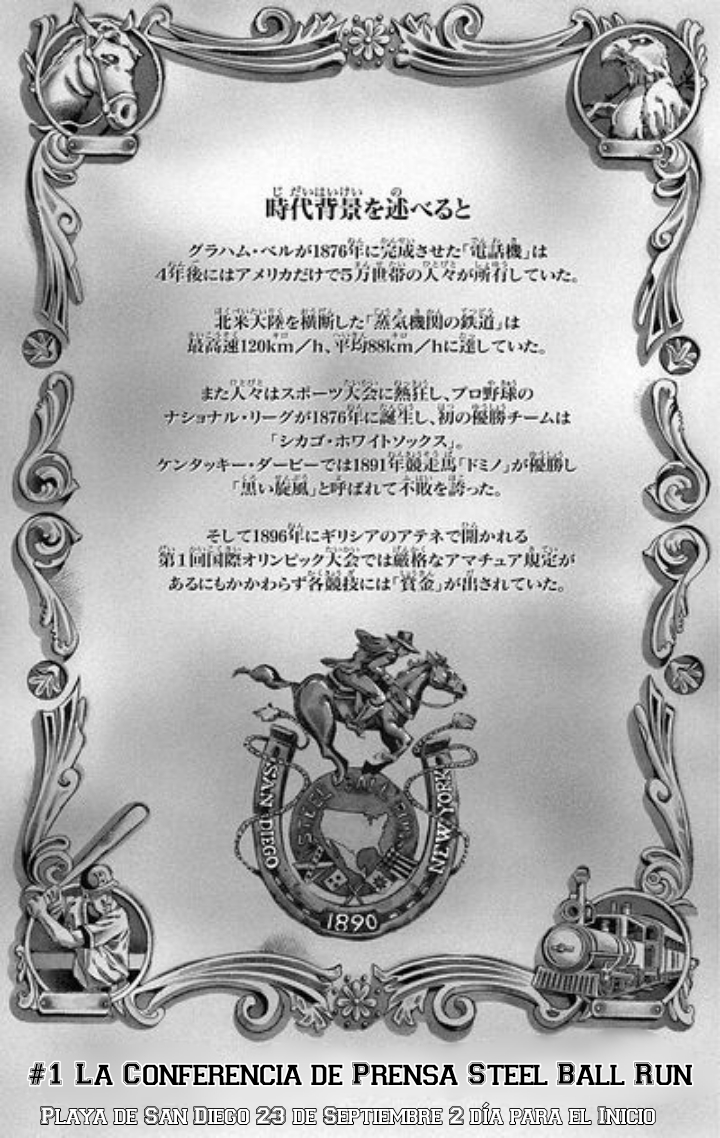 時代背景を述べると
グラハム・ベルが1876年に完成させた「電話機」は
4年後にはアメリカだけで5万世帯の人々が所有していた。
北米大陸を横断した「蒸気機関の鉄道」は
最高速120km/h、平均88km/hに達していた。
また人々はスポーツ大会に熱狂し、プロ野球の
ナショナル・リーグが1876年に誕生し、初の優勝チームは
「シカゴ・ホワイトソックス」。
ケンタッキー・ダービーでは1891年競走馬「ドミノ」が優勝し
「黒い旋風」と呼ばれて不敗を誇った。
そして1896年にギリシアのアテネで開かれる
第1回国際オリンピック大会では厳格なアマチュア規定が
あるにもかかわらず各競技には「賞金」が出されていた。
STEEL BALL RUN
SAN DIEGO
NEW YORK
1890
#1 La Conferencia de Prensa Steel Ball Run
Playa de San Diego 23 de Septiembre 2 día para el Inicio